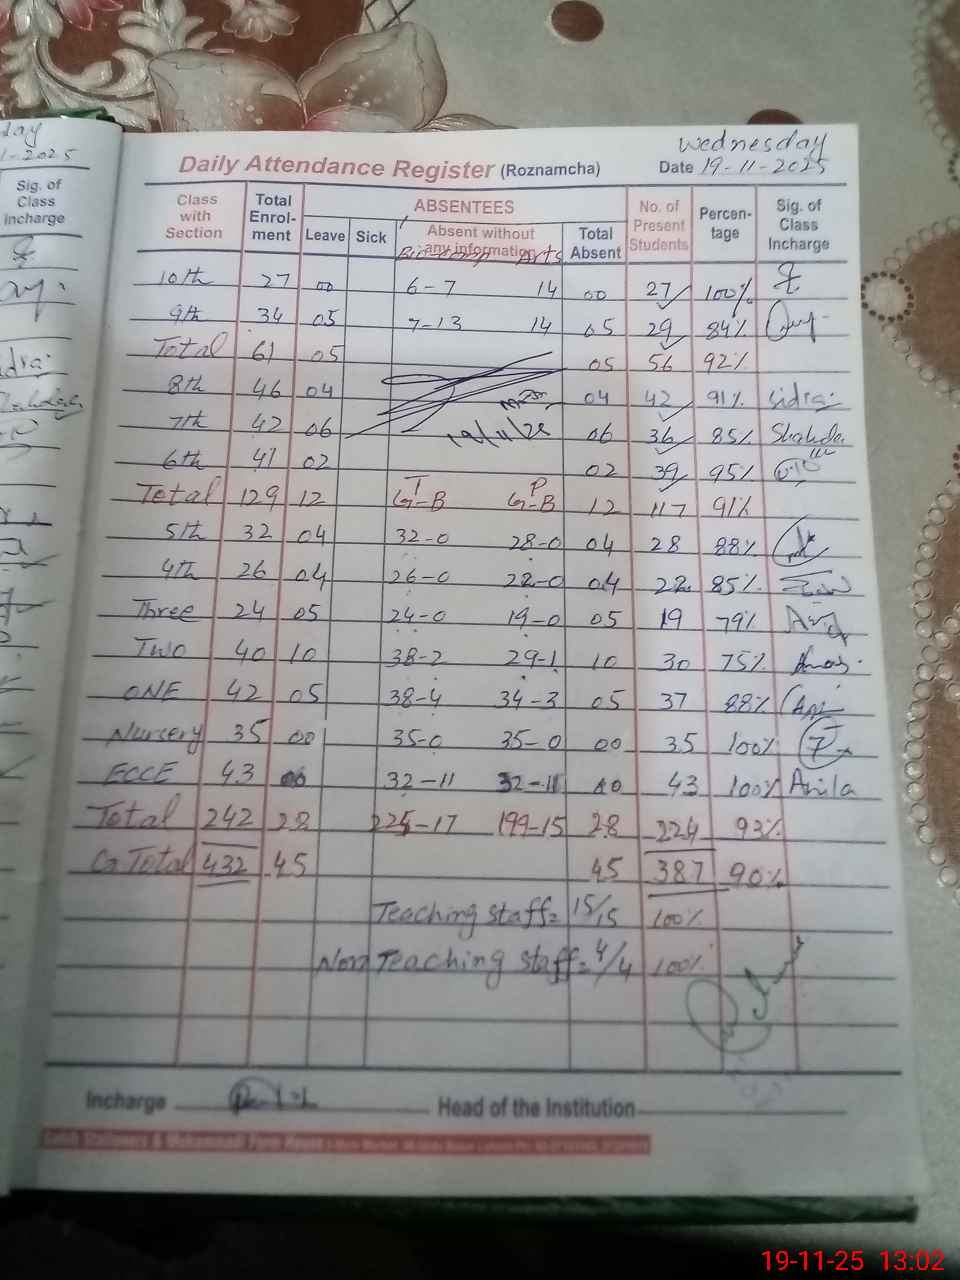 day
1-2025
Sig. of
Class
Incharge
Wednesday
Daily Attendance Register (Roznamcha) Date 19-11-2025
Class with Section Total Enrol-ment ABSENTEES No. of Present Students Percen-tage Sig. of Class Incharge
Leave Sick Absent without any information Total Absent
Arts
10th 27 00 6-7 14 00 27 100%
9th 34 05 7-13 14 05 29 84%
Total 61 05 05 56 92%
8th 46 04 04 42 91% Sidra
7th 42 06 19/11/25 06 36 85%
6th 41 02 02 39 95%
T P
Total 129 12 G-B G-B 12 117 91%
5th 32 04 32-0 28-0 04 28 88%
4th 26 04 26-0 22-0 04 22 85%
Three 24 05 24-0 19-0 05 19 79%
Two 40 10 38-2 29-1 10 30 75%
ONE 42 05 38-4 34-3 05 37 88%
Nursery 35 00 35-0 35-0 00 35 100%
ECCE 43 00 32-11 32-11 00 43 100% Anila
Total 242 28 225-17 199-15 28 224 93%
G Total 432 45 45 387 90%
Teaching staff= 15/15 100%
Non Teaching staff= 4/4 100%
Incharge Head of the Institution
19-11-25 13:02